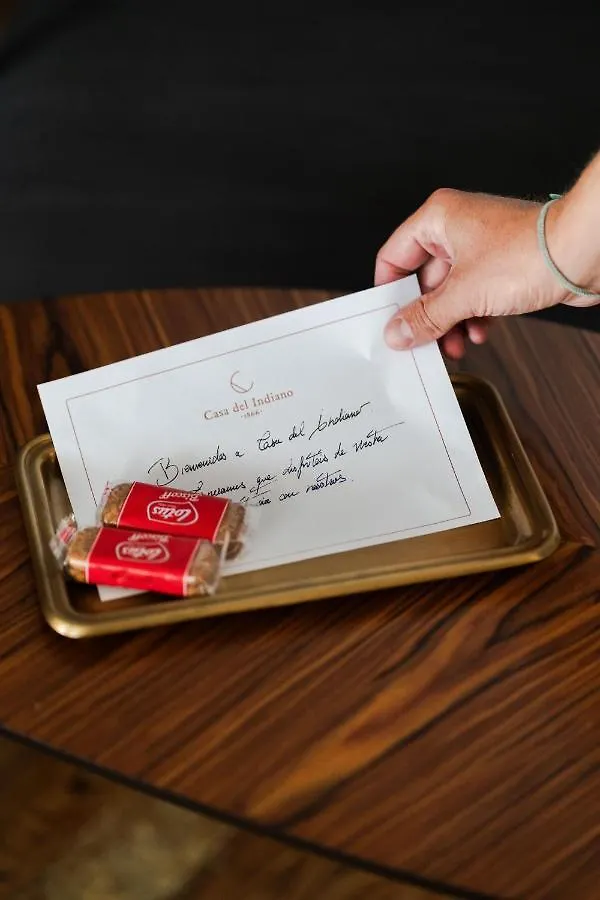 Casa del Indiano
-1866-
Bienvenidos a Casa del Indiano
Esperamos que disfrutéis de vuestra
con nosotros.
Lotus
Biscoff
Lotus